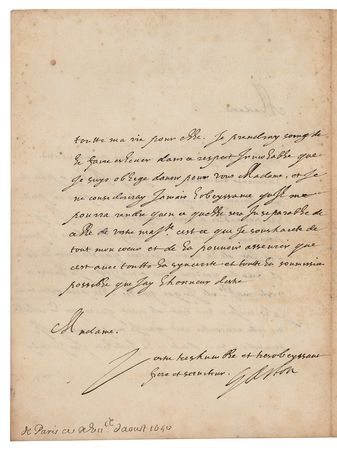 toutte ma vie pour elle. Je prendray soing de
le faire eslever dans ce respect Inviolable que
Je suys oblige davoir pour vous Madame, et Je
ne consideray Jamais lobeyssance quil me
pourra rendre quen ce quelle sera Inseparable de
celle de vostre ma^te cest ce que Je souhaite de
tout mon coeur et de la pouvoir asseurer que
cest avec toutte la syncerite et toutte la soumission
possible que Jay lhonneur destre
Madame.
Vostre treshumble et tresobeyssant
frere et serviteur. Gaston
De Paris ce 11^e daoust 1650